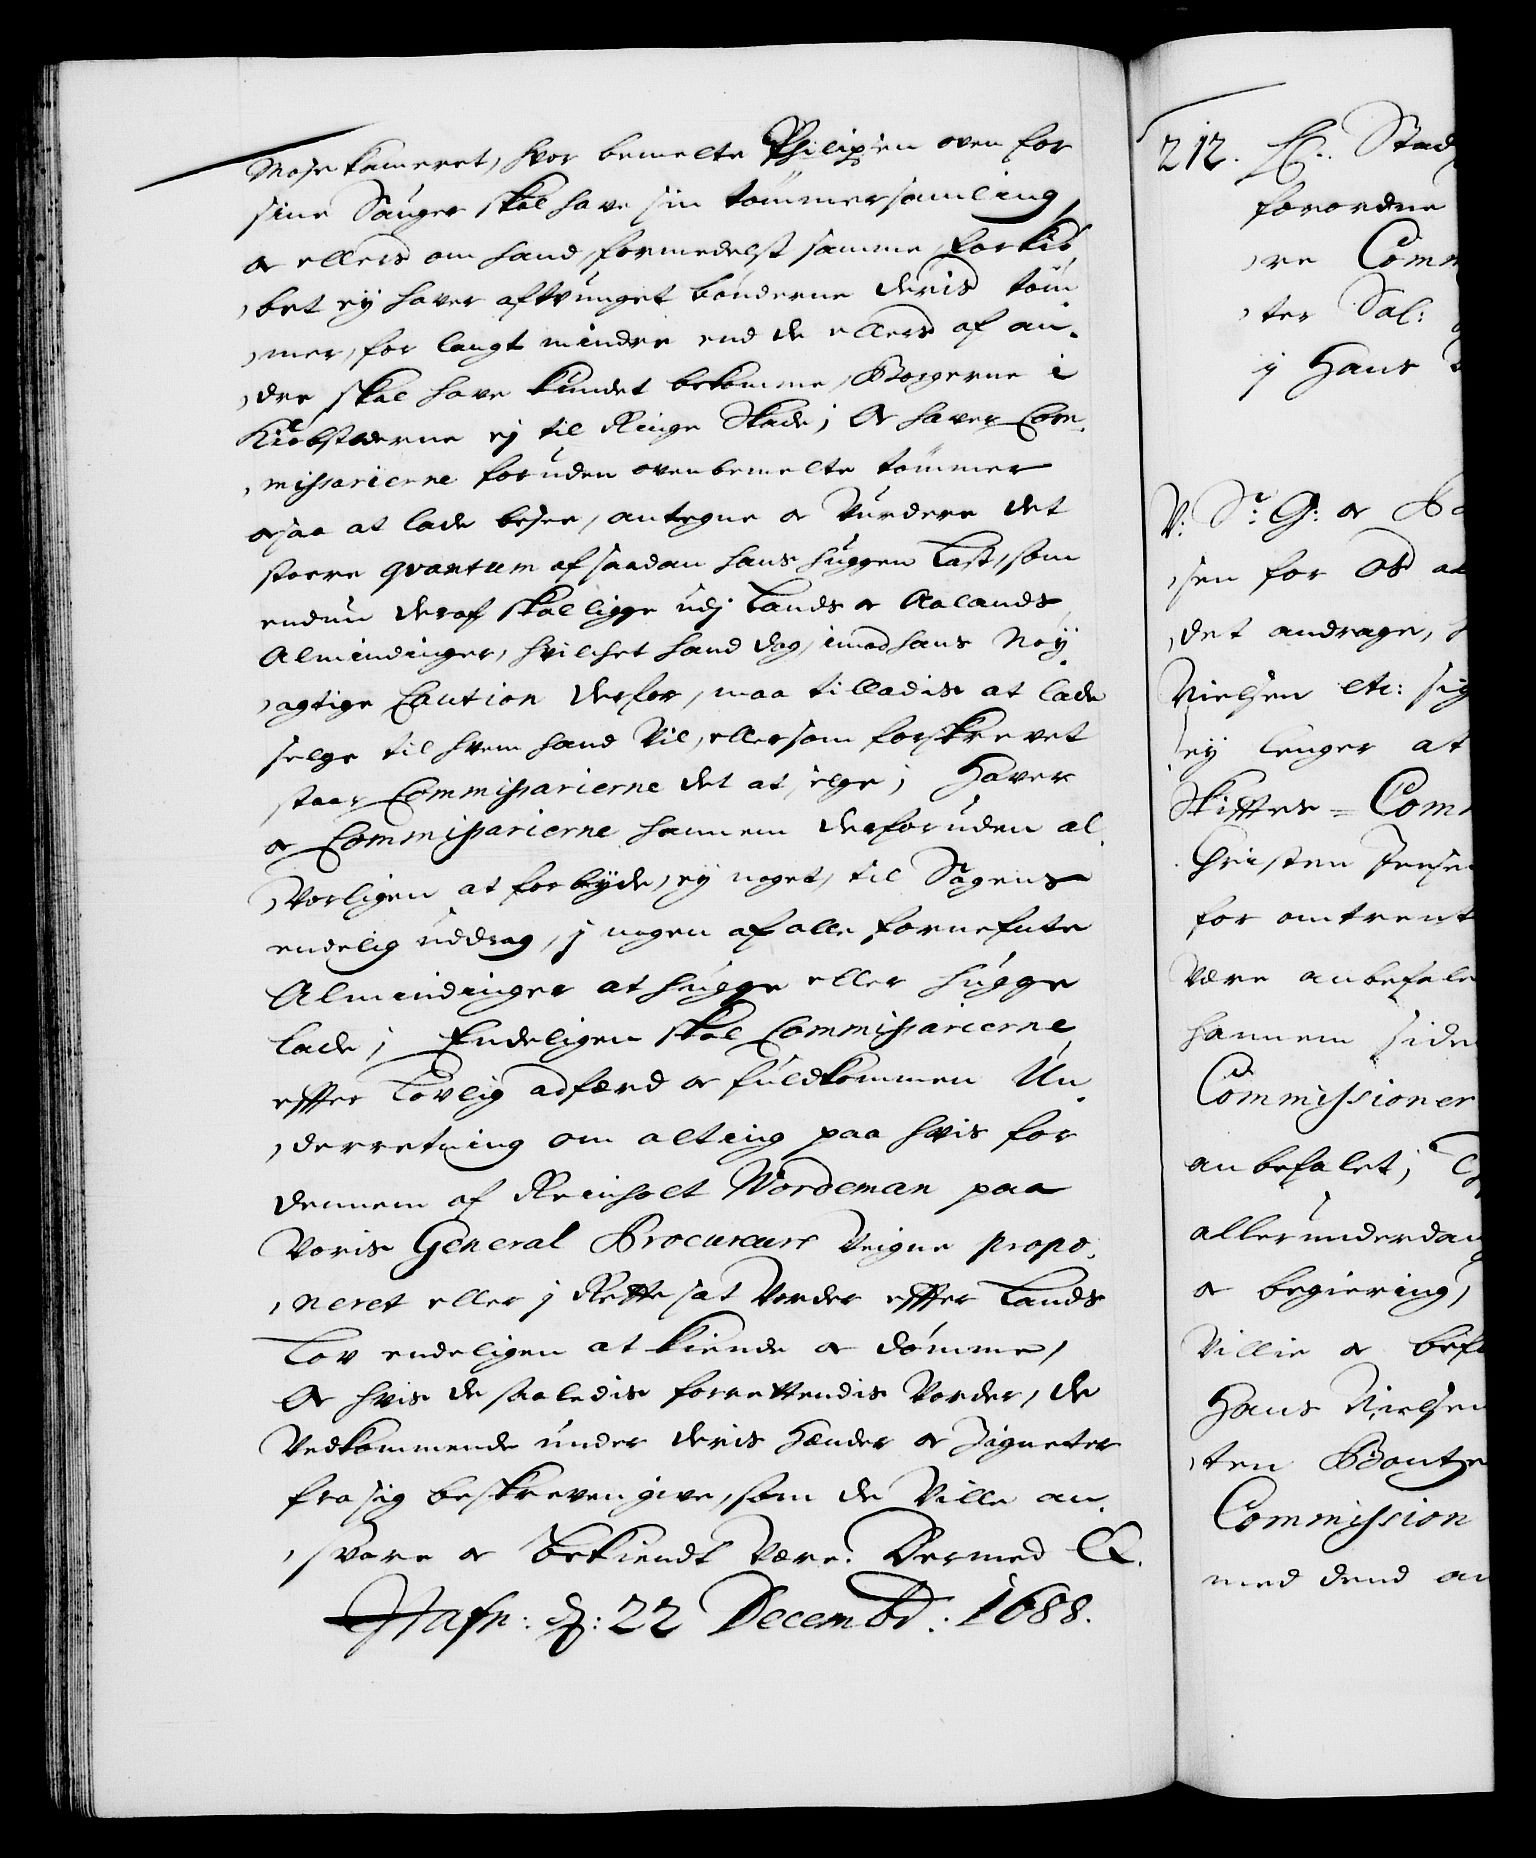 Mosekameret, hvor bemelte Philipsen oven for
sine Sauger skal have sin tømmersamling,
og ellers om hand, formedelst samme forkiø¬
bet ej haver aftvunget bønderne deris tøm¬
mer, for langt mindre end de ellers af an¬
dre skal have kundet bekomme, Borgerne i
Kiøbstæderne ej til Ringe Skade; Og haver Com¬
missarierne foruden ovenbemelte tømmer
ogsaa at lade besee, antegne og Vurdere det
støre qvantum af saadan hans huggen Last, som
endnu deraf skal ligge udj Lands og Aalands
Almindinger, hvilchet hand dog, imod hans Nøy¬
agtige Caution derfor, maa tilladis at lade
selge til hvem hand Vil, ellersom forskrevet
staar Commissarierne det at selge; Haver
og Commissarierne hannem derforuden al¬
Vorligen at forbyde, ej noget, til Sagens
endelig uddrag, j nogen af alle fornefnte
Almindinger at hugge eller hugge
lade; Endeligen skal Commissarierne,
effter Lovlig adfærd og fuldkommen Un¬
derretning om alting paa hvis for
dennem af Reinholt Nordeman paa
Voris General Procureurs Veigne propo¬
neret eller j Rette sat Vorder effter Lands
Lov endeligen at kiende og dømme,
Og hvis de saaledis forrettendis Vorder, de
Vedkommende under deris Hænder og Zigneter
fra sig beskreven give, som de Ville an¬
svare og bekiendt være. Dermed &.
Hafn: d: 22 Decembr: 1688.
212. Stad
forordne
re Com
ter Sal:
j Hans
V: G: og
sen for os at
det andrage,
Nielsen etc: sig
ej lenger at
Skifftes = Com
Christen Jensen
for omtrent
være anbefale
hannem siden
Commissioner
anbefalet;
allerunderdan
og begiering,
Villie og befa
Hans Nielsen
ten Bontze
Commission
med dend an